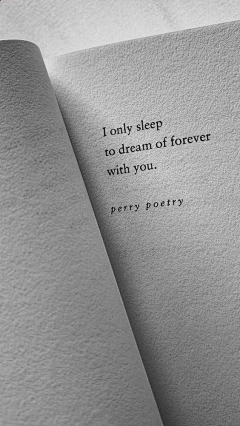 I only sleep
to dream of forever
with you.
perry poetry